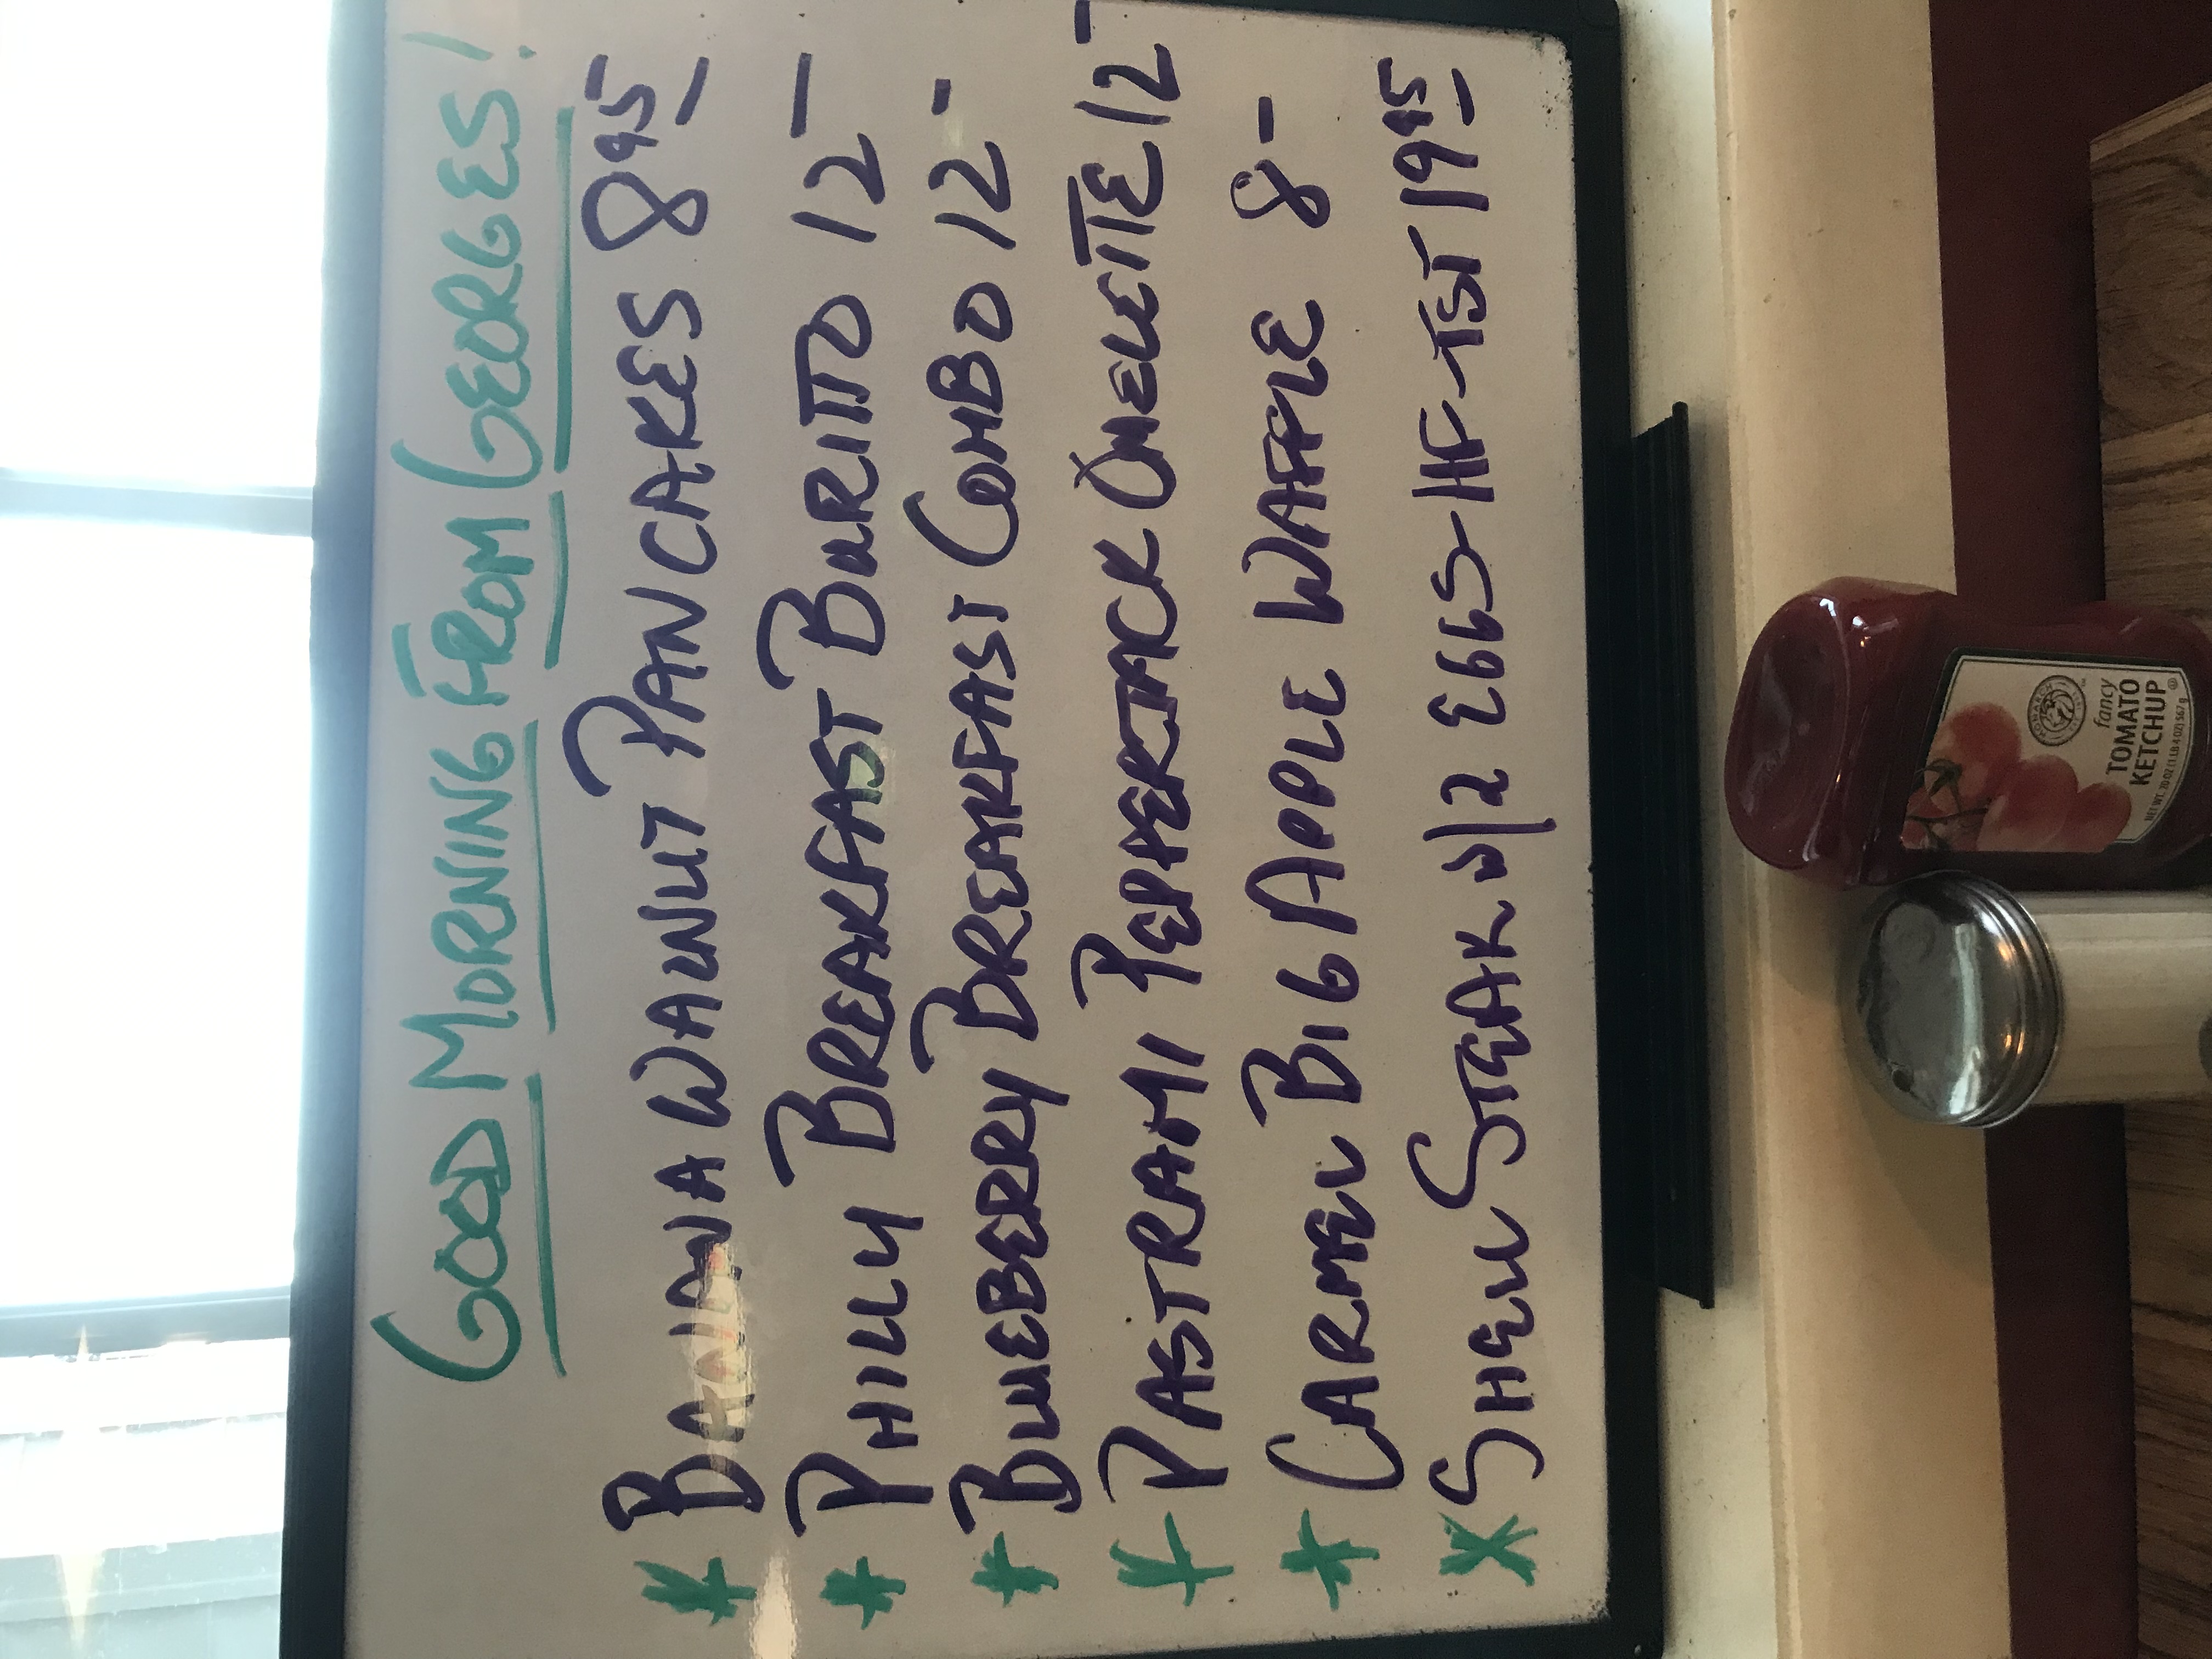 GOOD MORNING FROM GEORGES!
* BANANA WALNUT PANCAKES 8 95
* PHILLY BREAKFAST BURITTO 12 -
* BLUEBERRY BREAKFAST COMBO 12 -
* PASTRAMI PEPPERJACK OMELETTE 12 -
* CARMEL BIG APPLE WAFFLE 8 -
* SHELL STEAK w/2 EGGS-HF-TST 19 95
MONARCH
fancy
TOMATO
KETCHUP
NET WT. 20 OZ (1 LB 4 OZ) 567 g